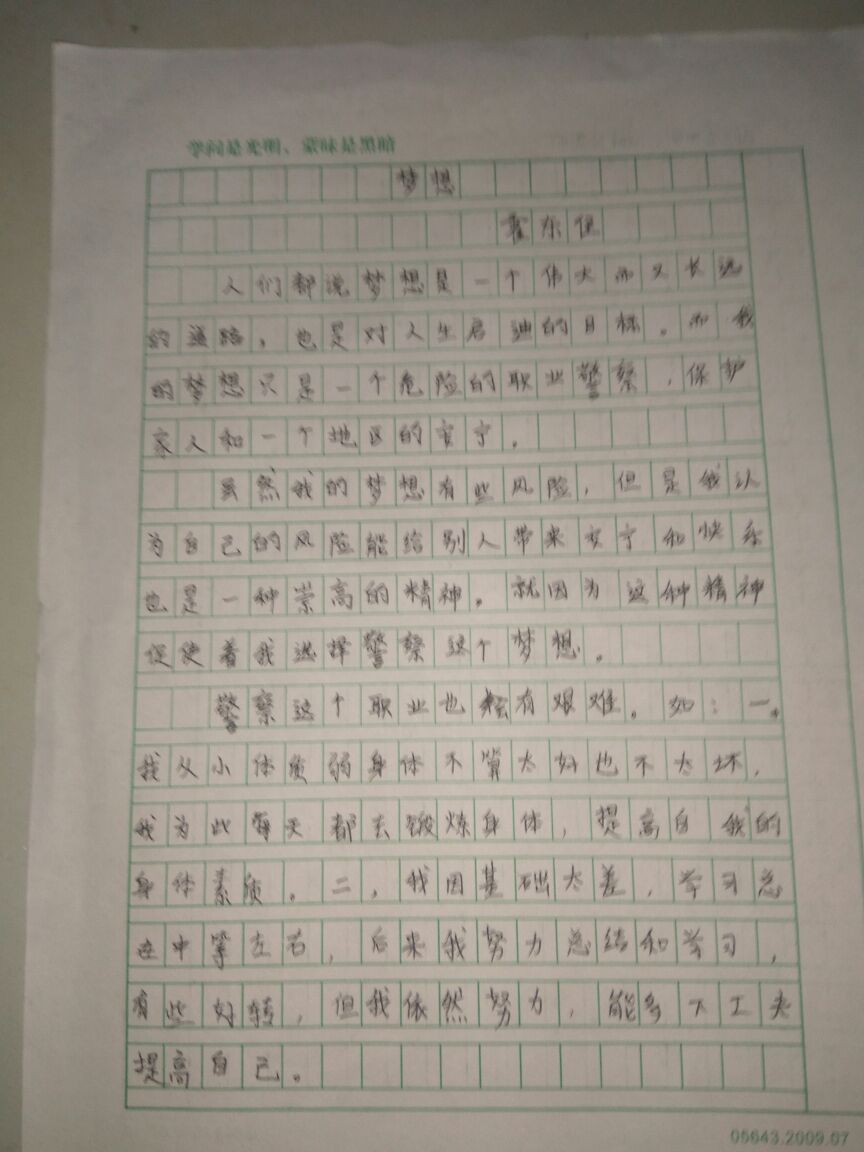 学问是光明、蒙昧是黑暗
梦想
霍东恒
人们都说梦想是一个伟大而又长远
的道路，也是对人生启迪的目标。而我
的梦想只是一个危险的职业警察，保护
家人和一个地区的安宁。
虽然我的梦想有些风险，但是我认
为自己的风险能给别人带来安宁和快乐
也是一种崇高的精神。就因为这种精神
促使着我选择警察这个梦想。
警察这个职业也有艰难。如：一。
我从小体质弱身体不算太好也不太坏，
我为此每天都去锻炼身体，提高自我的
身体素质。二，我因基础太差，学习总
在中等左右，后来我努力总结和学习，
有些好转，但我依然努力，能多下工夫
提高自己。
05643.2009.07